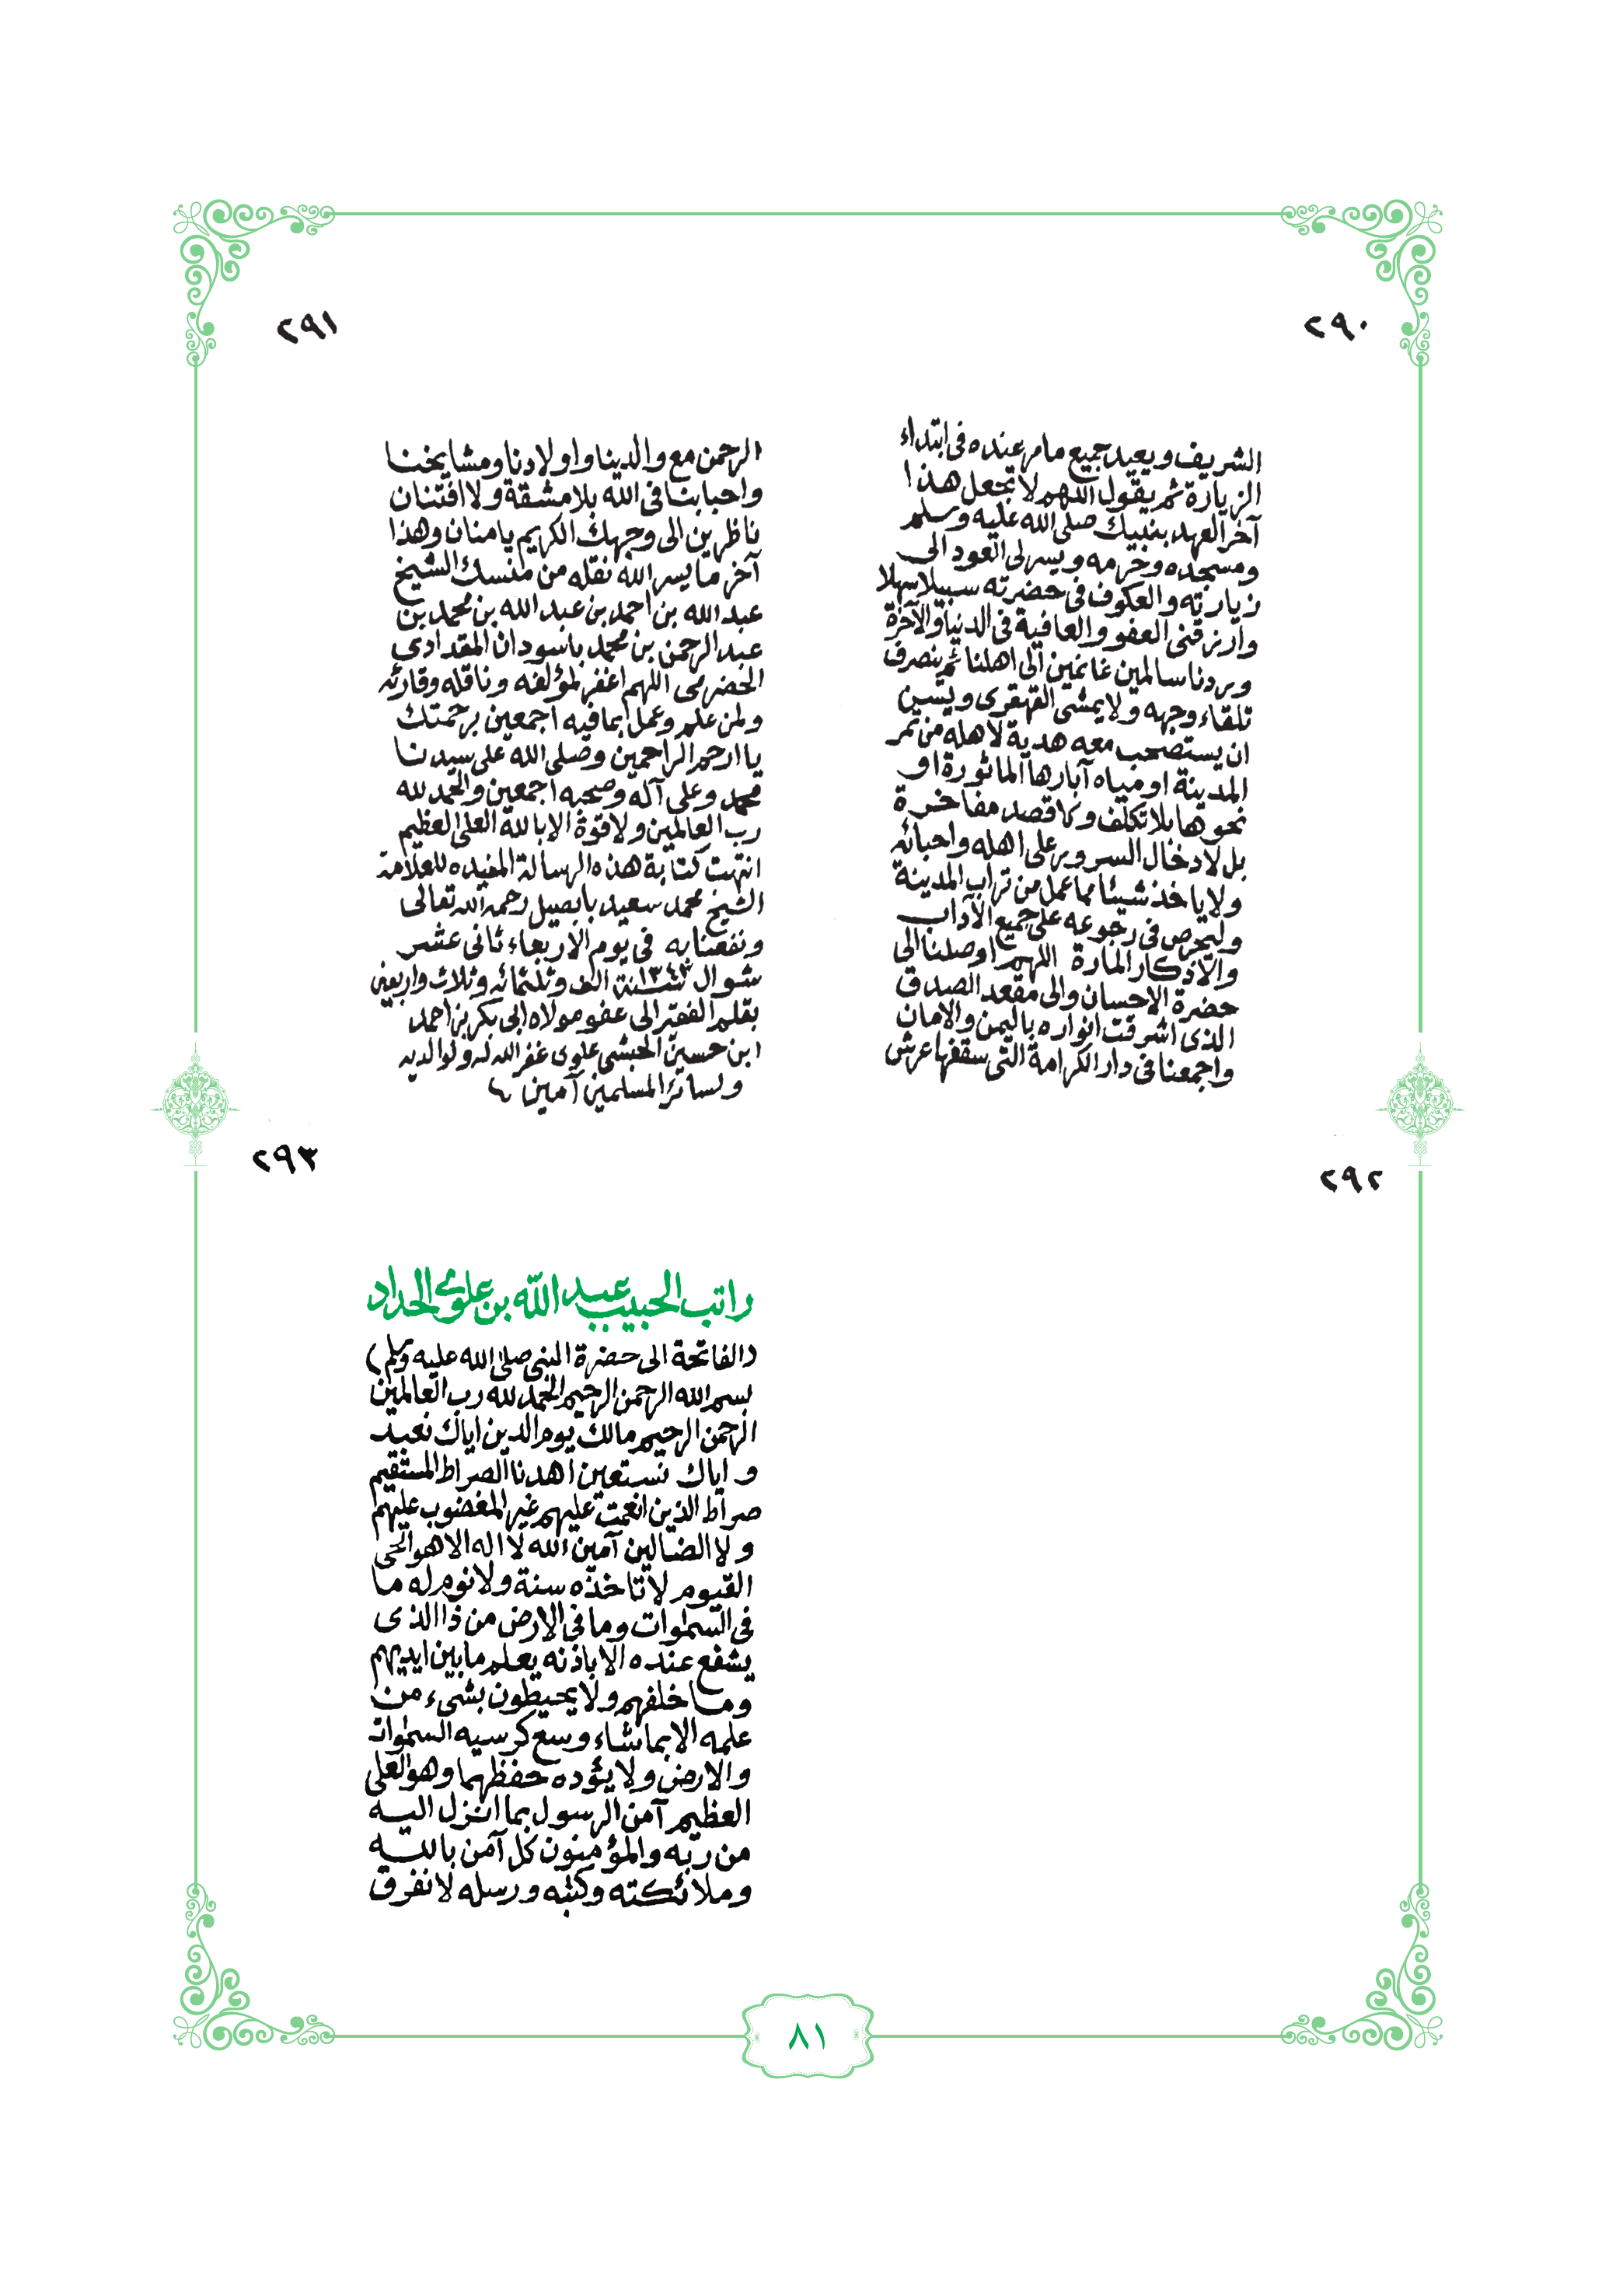 ٢٩٠
الشريف ويعيد جميع مامر عنده فى ابتداء
الزيارة ثم يقول اللهم لا تجعل هذا
آخر العهد بنبيك صلى الله عليه وسلم
ومسجده وحرمه ويسر لى العود الى
زيارته والعكوف فى حضرته سبيلا سهلا
وارزقنى العفو والعافية فى الدنيا والآخرة
وردنا سالمين غانمين الى اهلنا ثم ينصرف
تلقاء وجهه ولا يمشى القهقرى ويسن
ان يستصحب معه هدية لاهله من تمر
المدينة او مياه آبارها الماثورة او
نحوها بلا تكلف و قصد مفاخرة
بل لادخال السرور على اهله واحبائه
ولا ياخذ شيئا مما عمل من تراب المدينة
وليحرص فى رجوعه على جميع الآداب
والاذكار المارة اللهم اوصلنا الى
حضرة الاحسان والى مقعد الصدق
الذى اشرقت انواره باليمن والامان
واجمعنا فى دار الكرامة التى سقفها عرش
٢٩١
الرحمن مع والدينا واولادنا ومشايخنا
واحبابنا فى الله بلا مشقة ولا افتنان
ناظرين الى وجهك الكريم يامنان وهذا
آخر ما يسر الله نقله من منسك الشيخ
عبد الله بن احمد بن عبد الله بن محمد بن
عبد الرحمن بن محمد باسودان المقدادى
الحضرمى اللهم اغفر لمؤلفه وناقله وقارئه
ولمن علم وعمل بمافيه اجمعين برحمتك
يا ارحم الراحمين وصلى الله على سيدنا
محمد وعلى آله وصحبه اجمعين والحمد لله
رب العالمين ولا قوة الا بالله العلى العظيم
انتهت كتابة هذه الرسالة المفيده للعلامة
الشيخ محمد سعيد بابصيل رحمه الله تعالى
ونفعنا به فى يوم الاربعاء ثانى عشر
شوال ١٣٤٣ سنة الف وثلثمائه وثلاث واربعين
بقلم الفقير الى عفو مولاه ابى بكر بن احمد
ابن حسين الحبشى علوى غفر الله له ولوالديه
ولسائر المسلمين آمين
٢٩٢
٢٩٣
راتب الحبيب عبد الله بن علوي الحداد
(الفاتحة الى حضرة النبى صلى الله عليه وسلم)
بسم الله الرحمن الرحيم الحمد لله رب العالمين
الرحمن الرحيم مالك يوم الدين اياك نعبد
و اياك نستعين اهدنا الصراط المستقيم
صراط الذين انعمت عليهم غير المغضوب عليهم
ولا الضالين آمين الله لا اله الا هو الحى
القيوم لا تاخذه سنة ولا نوم له ما
فى السموات وما فى الارض من ذا الذى
يشفع عنده الا باذنه يعلم ما بين ايديهم
وما خلفهم ولا يحيطون بشىء من
علمه الا بما شاء وسع كرسيه السموات
والارض ولا يئوده حفظهما وهو العلى
العظيم آمن الرسول بما انزل اليه
من ربه والمؤمنون كل آمن بالله
وملائكته وكتبه ورسله لا نفرق
٨١